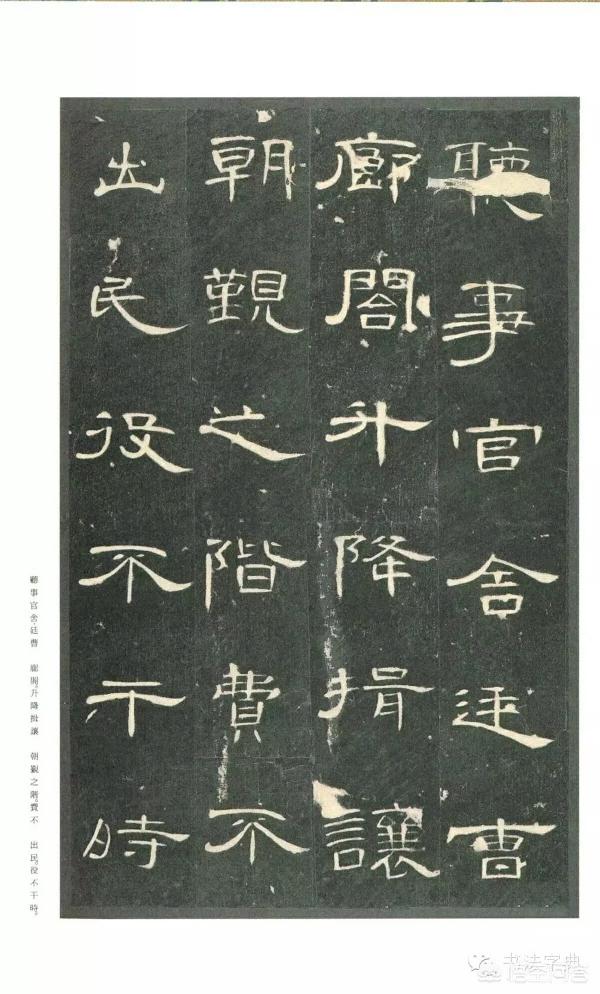 聽事官舍廷曹
廊閤升降揖讓
朝覲之階費不
出民役不干時
聽事官舍廷曹 廊閤。升降揖讓 朝覲之階。費不 出民。役不干時。
书法字典
悟空问答